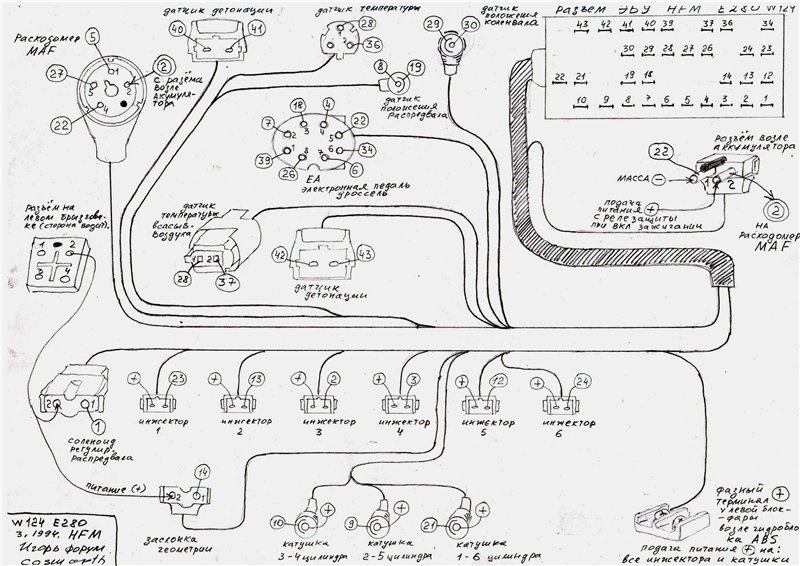 Расходомер
MAF
5
27
22
1
2
4
2
с разъёма
возле
акумуля-
тора
датчик детонации
40
41
датчик температуры
28
36
8
19
датчик
положения
распредвала
29
30
датчик
положения
коленвала
Разъем ЭБУ HFM E280 W124
43 42 41 40 39 37 36 34
30 29 28 27 26 24 23
22 21 19 18 14 13 12
10 9 8 7 6 5 4 3 2 1
18
4
7
22
39
34
26
6
3
4
2
5
1
6
8
7
ЕА
электронная педаль
дроссель
22
МАССА −
1 2
Разъём возле
аккумулятора
подача
питания +
с реле защиты
при вкл зажигании
2
НА
Расходомер
MAF
Разъём на
левом брызгови-
ке (сторона водит.)
1 2
3 4
датчик
температуры
всасыв.
воздуха
1 2
28
37
42
43
датчик
детонации
2 1
1
соленоид
регулир.
распредвала
+ 23
инжектор
1
+ 13
инжектор
2
+ 2
инжектор
3
+ 3
инжектор
4
+ 12
инжектор
5
+ 24
инжектор
6
питание (+)
14
2 1
заслонка
геометрии
10 +
катушка
3-4 цилиндра
9 +
катушка
2-5 цилиндра
21 +
катушка
1-6 цилиндра
фазный +
терминал
у левой блок-
-фары
возле гидробло-
ка ABS
подача питания + на:
все инжектора и катушки
W124 E280
3, 1994. HFM
Игорь форум